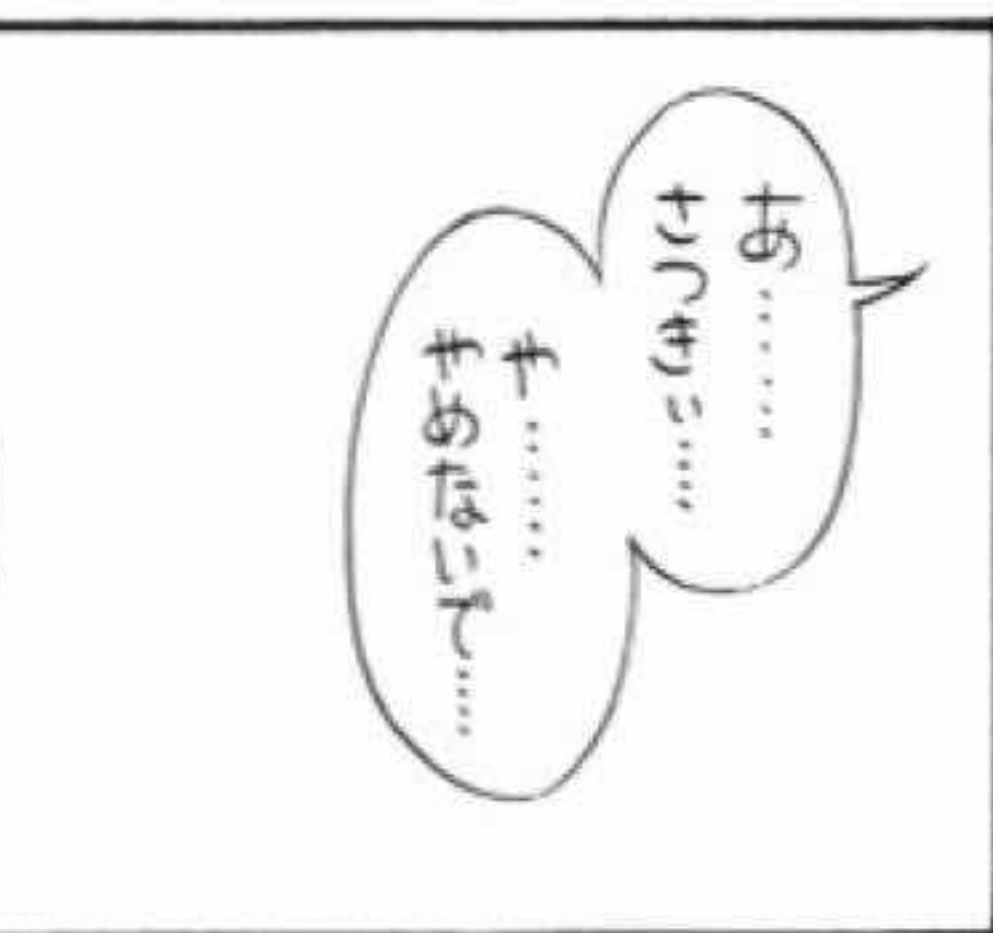 あ……
さつきぃ……
や……
やめないで……